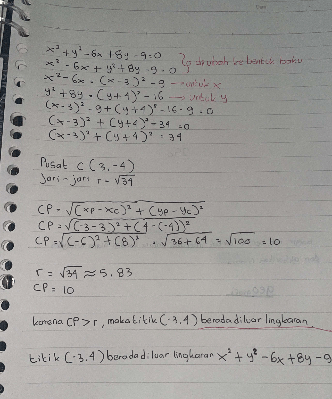 x² + y² - 6x + 8y - 9 = 0
x² - 6x + y² + 8y - 9 = 0 } diubah ke bentuk baku
x² - 6x = (x-3)² - 9 → untuk x
y² + 8y = (y+4)² - 16 → untuk y
(x-3)² - 9 + (y+4)² - 16 - 9 = 0
(x-3)² + (y+4)² - 34 = 0
(x-3)² + (y+4)² = 34
Pusat C (3,-4)
Jari-jari r = √34
CP = √(xp - xc)² + (yp - yc)²
CP = √(-3-3)² + (4-(-4))²
CP = √(-6)² + (8)² = √36 + 64 = √100 = 10
r = √34 ≈ 5.83
CP = 10
karena CP > r, maka titik (-3,4) berada diluar lingkaran
titik (-3,4) berada diluar lingkaran x² + y² - 6x + 8y - 9